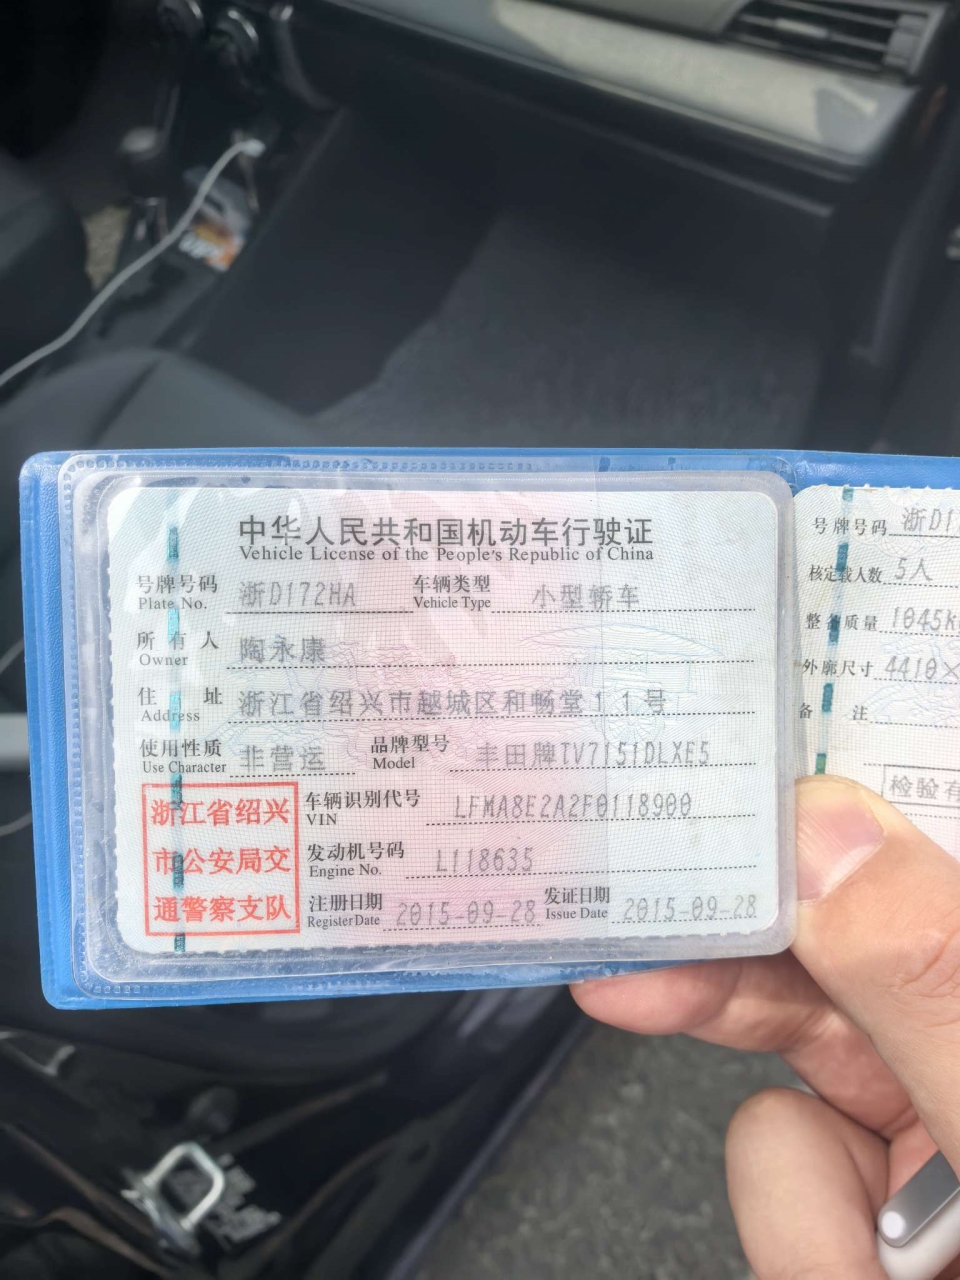 中华人民共和国机动车行驶证
Vehicle License of the People's Republic of China
号牌号码 浙D172HA 车辆类型 小型轿车
Plate No. Vehicle Type
所有人 陶永康
Owner
住址 浙江省绍兴市越城区和畅堂11号
Address
使用性质 非营运 品牌型号 丰田牌TV7151DLXE5
Use Character Model
浙江省绍兴
市公安局交
通警察支队
车辆识别代号 LFMA8E2A2F0118900
VIN
发动机号码 L118635
Engine No.
注册日期 2015-09-28 发证日期 2015-09-28
Register Date Issue Date
号牌号码 浙D17
核定载人数 5人
整备质量 1045k
外廓尺寸 4410×
备注
检验有